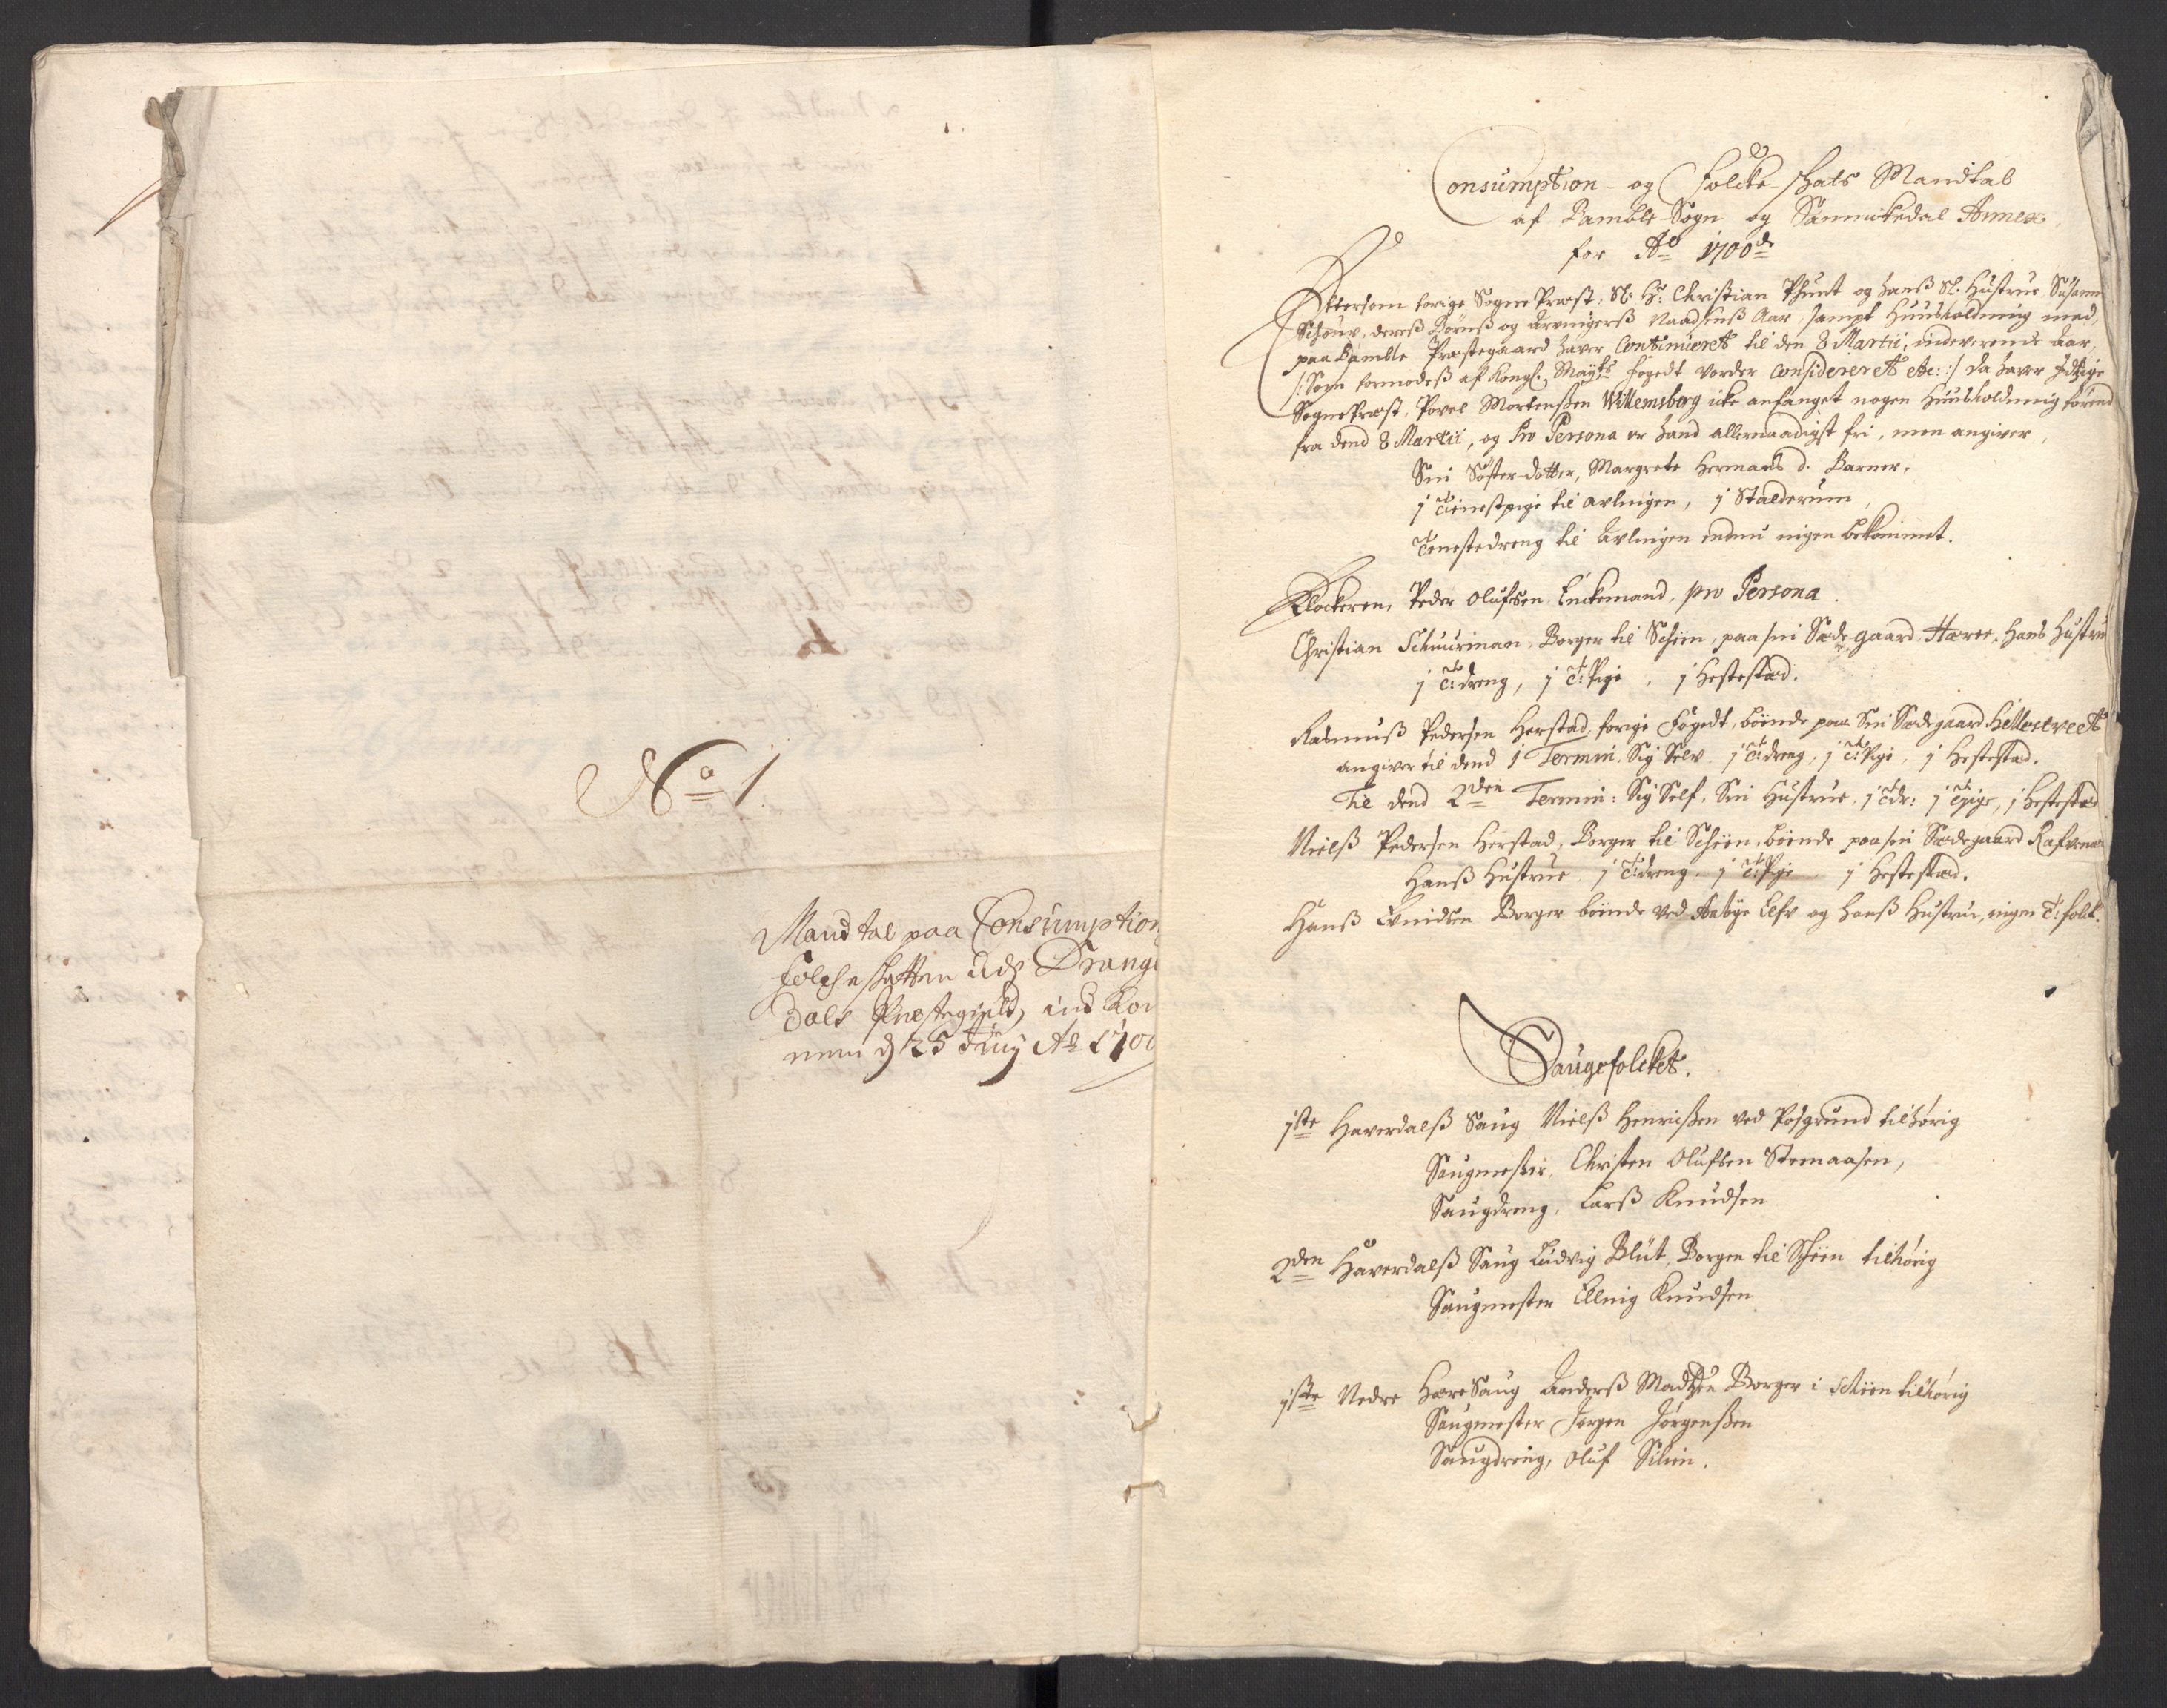 No 1
Mandtal paa Consumption
folche skatten udj Drange
dals Præstegield, ind Kom
men d 25 Junj Ao 1700
Consumption- og Folcke-skats Mandtal
af Bamble Sogn og Sannikedal Annex
for Ao 1700de
Eftersom forige Sogne Præst, Sl. Hr. Christian Phunt og hanß Sl. Hustrue Susanne
Schouv, dereß Børnß og Arvingerß Naadsenß Aar, sampt Huusholdning med,
paa Bamble Præstegaard haver Continueret til den 8 Martii, indeverende Aar,
/: Som formodeß af Kongl. Mayts Fogedt vorder Considereret etc: :/ da haver Jtzige
Sogne Præst, Povel Mortenßen Willemsborg icke anfanget nogen Huusholdning førend
fra dend 8 Martii, og Pro Persona er hand allernaadigst fri, men angiver,
Sin Søster-dotter, Margrete Hermans d. Barner,
1 Tienistpige til avlingen, 1 Stalderum,
Tenestedreng til Avlingen endnu ingen bekommet.
Klockeren, Peder Olufsen Enckemand, pro Persona.
Christian Schuurman, Borger til Schien, paa sin Sædegaard Hærøe, Hans Hustru
1 T: dreng, 1 T: Pige, 1 Hestestad.
Rasmuß Pedersen Herstad, forige Fogedt, boende paa Sin Sædegaard Hellestveet
angiver til dend 1 Termin, Sig Selv, 1 T: dreng, 1 T: Pige, 1 Hestestad.
Til dend 2den Termin: Sig Self, Sin Hustrue, 1 T dr: 1 T pige, 1 Hestestad
Nielß Pedersen Herstad, Borger til Schien, boende paa sin Sædegaard Rafvenæs
Hanß Hustrue 1 T: dreng, 1 T: Pige 1 Hestestad.
Hanß Borger boende ved Aabye Elfv og hanß Hustrue, ingen T: folk.
Saugefolcket.
1ste Haverdalß Saug Nielß Henrichßen ved Posgrund tilhørig
Saugmester, Christen Olufsen Stemaasen,
Saugdreng, Larß Knudsen
2den Haverdalß Saug Ludvig Blüt, Borger til Schien tilhørig
Saugmester Elling Knudsen
1ste Nedre Hærøe Saug Anderß Madtzen Borger i Schien tilhørig
Saugmester Jørgen Jørgenßen
Saugdreng, Oluf